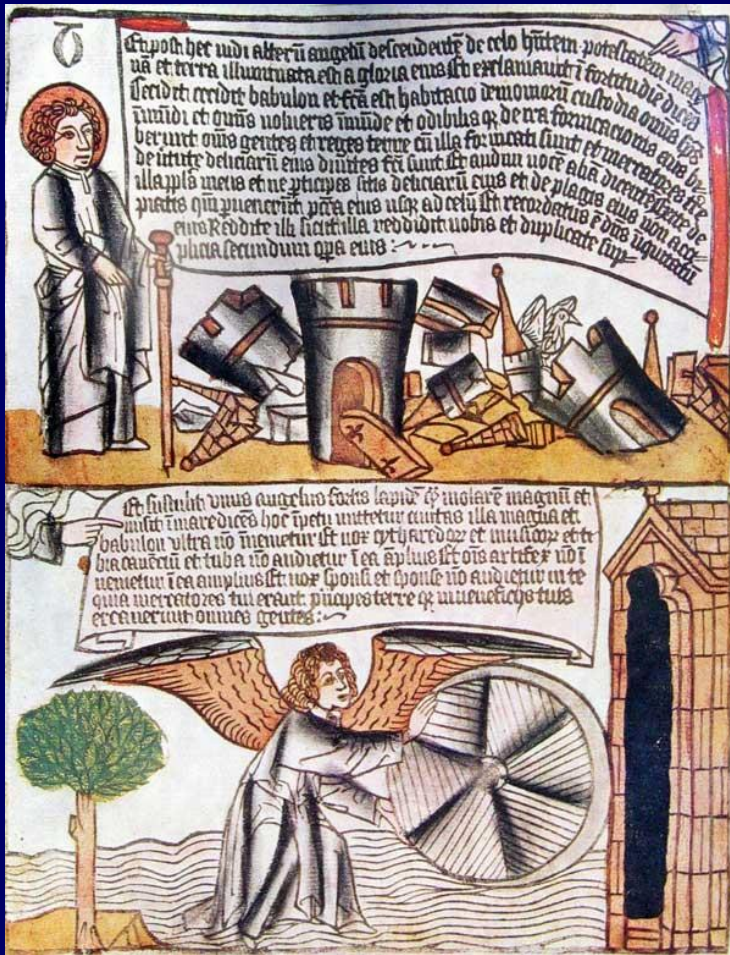 Et post hec vidi alterū angelū descendentē de celo hñtem potestatem mag
nā et terra illuminata est a gloria eius Et exclamauit ī fortitudīe dicēs
Cecidit cecidit babulon et fcā est habitacio demoniorū custodia omnis sp̄s
īmūdi et omnis volucris īmūde et odibilis qr de ira fornicacionis eius bi
berunt om̄s gentes et reges terre cū illa fornicati sunt et mercatores tr̄e
de ūtute deliciarū eius diuites fc̄i sunt Et audiui uocē aliā dicentē exite de
illa ppl̄s meus et ne pticipes sitis deliciarū eius et de plagis eius non acci
piatis qm̄ puenerūt pctā eius usqr ad celū Et recordatus ē dn̄s īiquitatū
eius Reddite illi sicut illa reddidit uobis et duplicate dup
plicia secundum opa eius
Et sustulit vnus angelus fortis lapidē qr molarē magnū et
misit ī mare dicēs hoc īpetu mittetur ciuitas illa magna et
babulon vltra nō īuenietur Et uox cytharedor et musicor et ti
bia canenciū et tuba nō audietur ī ea āplius Et om̄s artifex nō ī
uenietur ī ea amplius Et uox sponsi et sponse nō audietur in te
quia mercatores tui erant pncipes terre qr in ueneficijs tuis
errauerunt omnes gentes